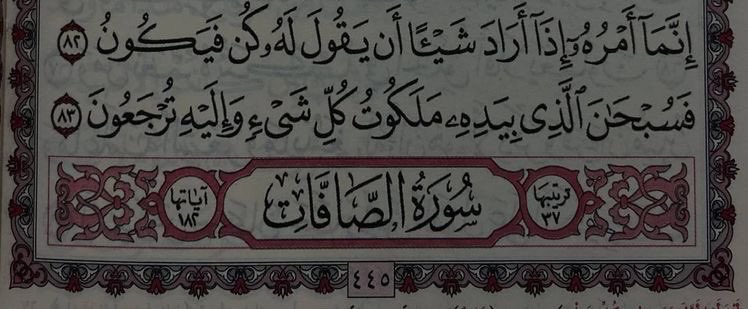 إِنَّمَآ أَمْرُهُۥٓ إِذَآ أَرَادَ شَيْـًٔا أَن يَقُولَ لَهُۥ كُن فَيَكُونُ ٨٢
فَسُبْحَانَ ٱلَّذِى بِيَدِهِۦ مَلَكُوتُ كُلِّ شَىْءٍ وَإِلَيْهِ تُرْجَعُونَ ٨٣
ترتيبها ٣٧ سُورَةُ الصَّافَّاتِ آياتها ١٨٢
٤٤٥